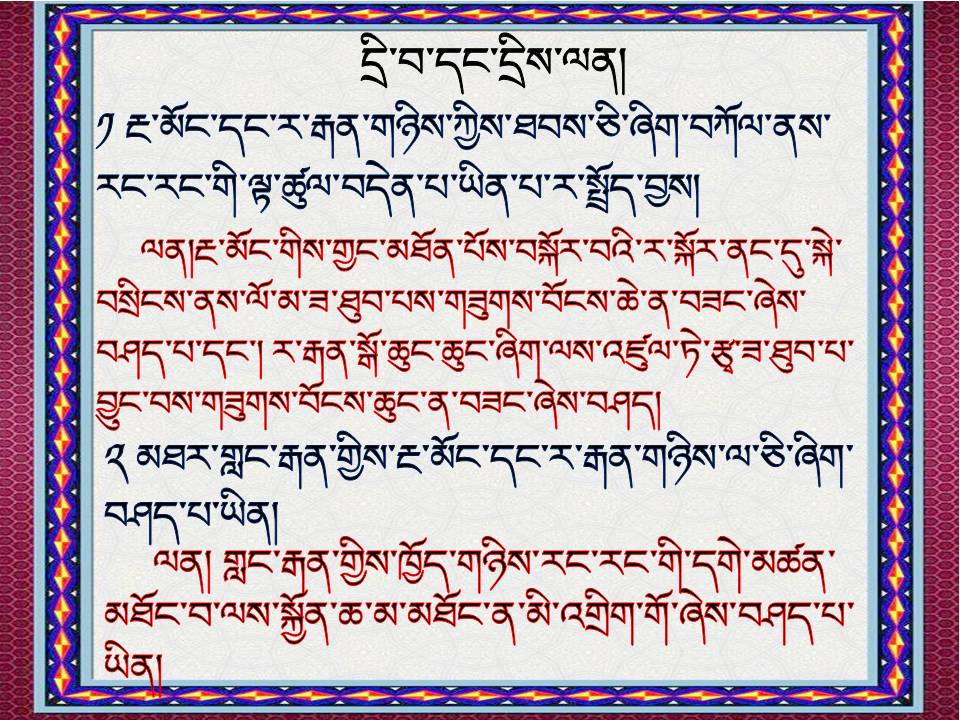 དྲི་བ་དང་དྲིས་ལན།
༡ རྔ་མོང་དང་ར་རྒན་གཉིས་ཀྱིས་ཐབས་ཅི་ཞིག་བཀོལ་ནས་
རང་རང་གི་ལྟ་ཚུལ་བདེན་པ་ཡིན་པ་ར་སྤྲོད་བྱས།
ལན།རྔ་མོང་གིས་གྱང་མཐོན་པོས་བསྐོར་བའི་ར་སྐོར་ནང་དུ་སྐེ་
བསྲིངས་ནས་ལོ་མ་ཟ་ཐུབ་པས་གཟུགས་བོངས་ཆེ་ན་བཟང་ཞེས་
བཤད་པ་དང་། ར་རྒན་སྒོ་ཆུང་ཆུང་ཞིག་ལས་འཛུལ་ཏེ་རྩྭ་ཟ་ཐུབ་པ་
བྱུང་བས་གཟུགས་བོངས་ཆུང་ན་བཟང་ཞེས་བཤད།
༢ མཐར་གླང་རྒན་གྱིས་རྔ་མོང་དང་ར་རྒན་གཉིས་ལ་ཅི་ཞིག་
བཤད་པ་ཡིན།
ལན། གླང་རྒན་གྱིས་ཁྱོད་གཉིས་རང་རང་གི་དགེ་མཚན་
མཐོང་བ་ལས་སྐྱོན་ཆ་མ་མཐོང་ན་མི་འགྲིག་གོ་ཞེས་བཤད་པ་
ཡིན།